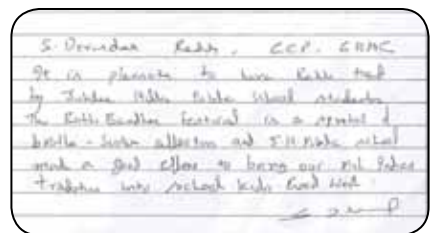 S. Devender Reddy, CCP. GHMC
It is pleasure to have Rakhi tied
by Jubilee Hills Public School students
The Rakhi Bandhan festival is a symbol of
brother - sister affection and J.H Public school
made a good effort to bring our old Indian
tradition into school kids Good Work